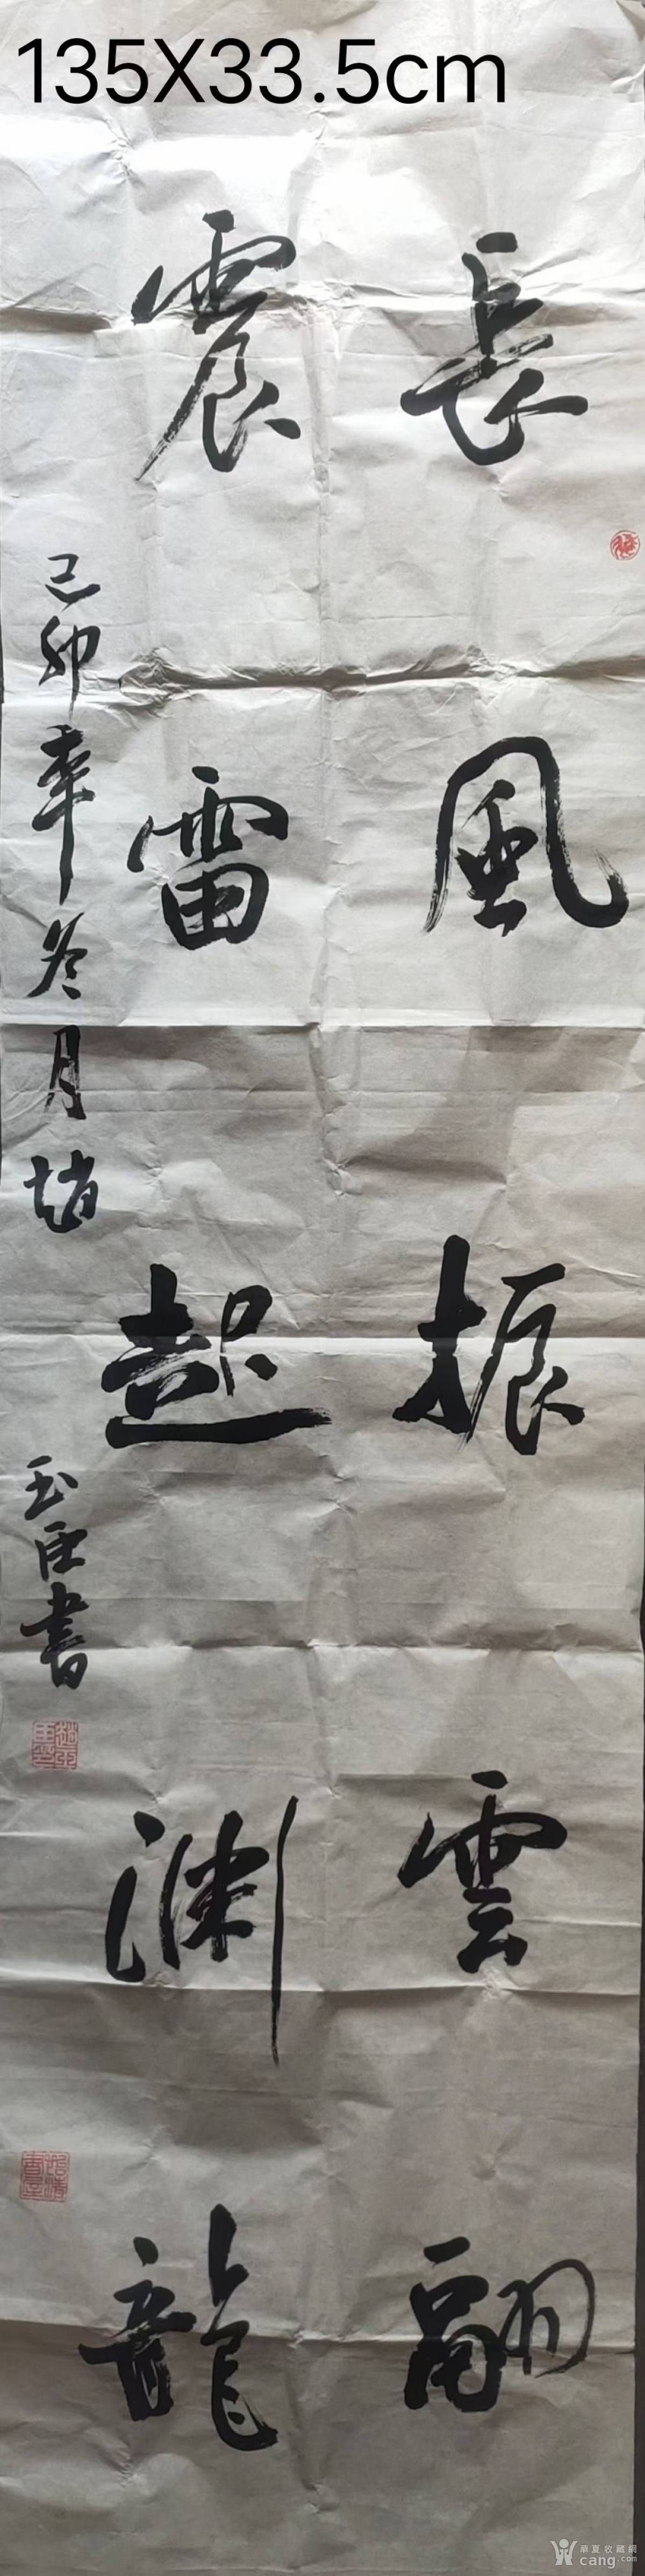 135X33.5cm
長風振雲翮
震雷起淵龍
己卯年冬月趙
玉臣書
華夏收藏網
cang.com